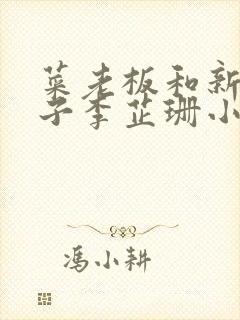 菜老板和新
子李芷珊小
冯小耕